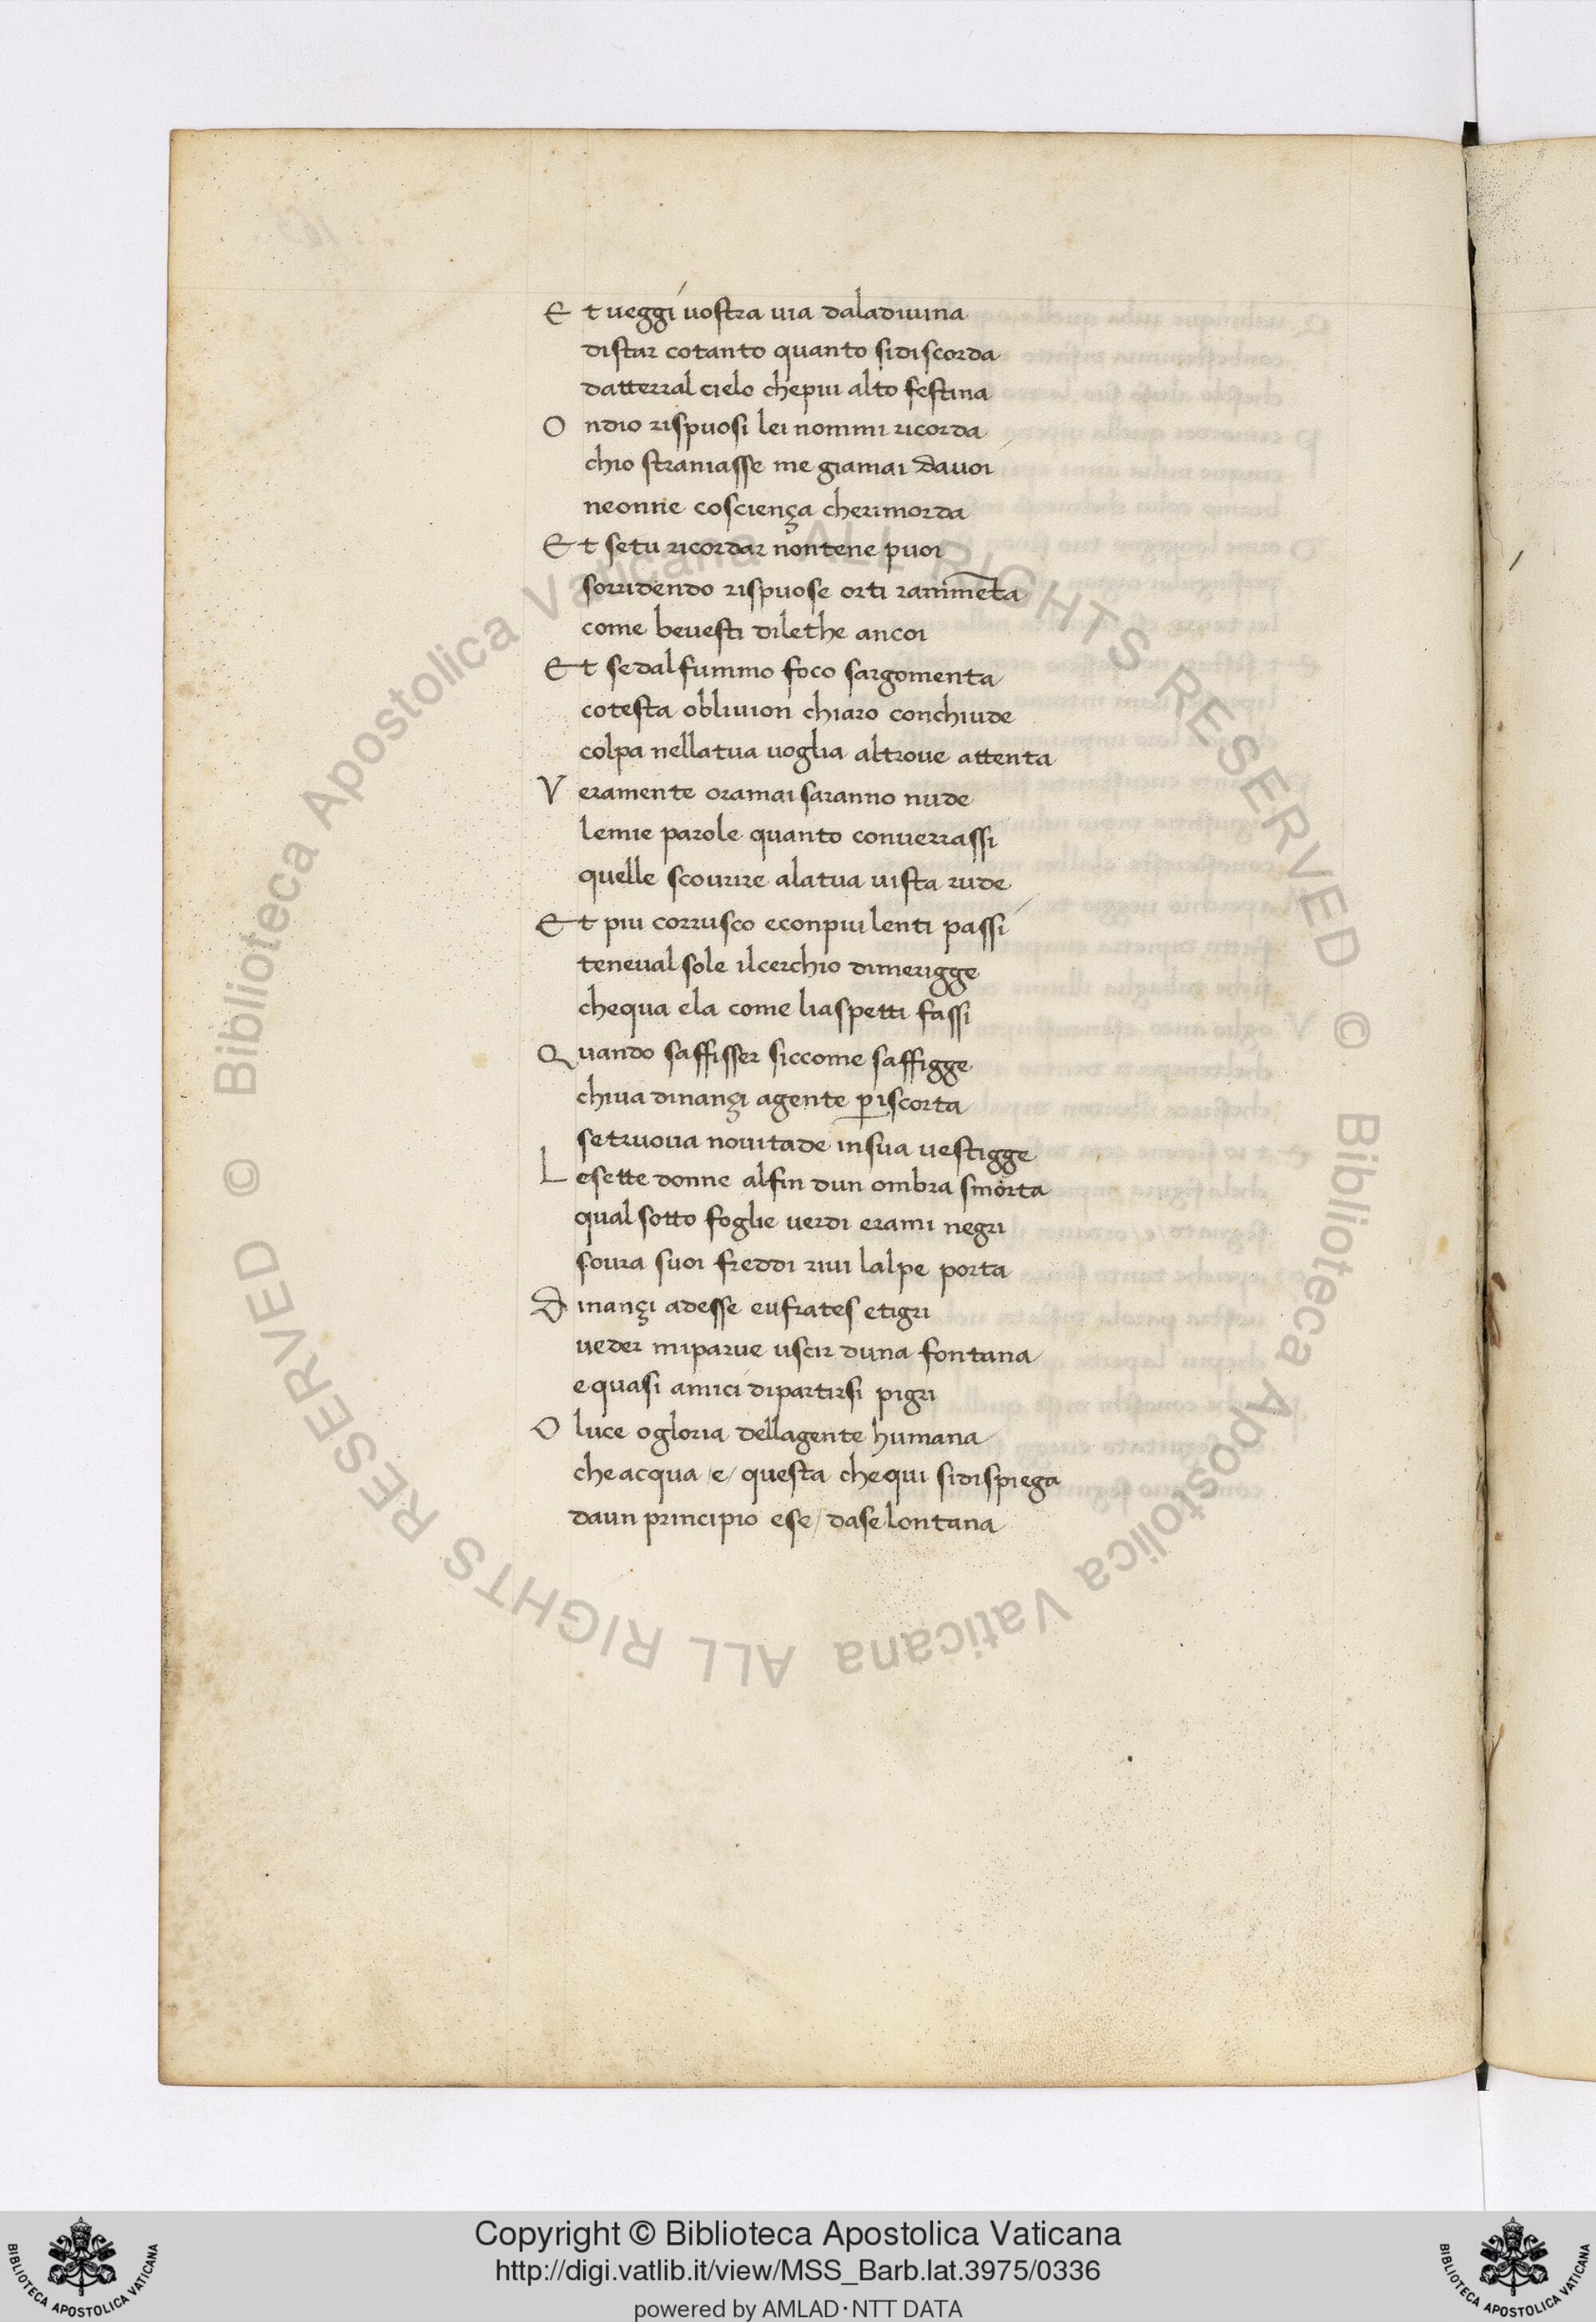 Et ueggi uostra uia daladiuina
distar cotanto quanto sidiscorda
datterral cielo chepiu alto festina
Ondio rispuosi lei nommi ricorda
chio straniasse me giamai dauoi
neonne cosciença cherimorda
Et setu ricordar nontene puoi
sorridendo rispuose orti rammēta
come beuesti dilethe ancoi
Et sedal fummo foco sargomenta
cotesta obliuion chiaro conchiude
colpa nellatua uoglia altroue attenta
Veramente oramai saranno nude
lemie parole quanto conuerrassi
quelle scourire alatua uista rude
Et piu corrusco econpiu lenti passi
teneual sole ilcerchio dimerigge
chequa ela come liaspetti fassi
Quando saffisser siccome saffigge
chiua dinançi agente p̲iscorta
setruoua nouitade insua uestigge
Lesette donne alfin dun ombra smorta
qual sotto foglie uerdi erami negri
soura suoi freddi riui lalpe porta
Dinançi adesse eufrates etigri
ueder miparue uscir duna fontana
e quasi amici dipartirsi pigri
O luce o gloria dellagente humana
che acqua /e/ questa chequi sidispiega
daun principio ese/ dase lontana
© Biblioteca Apostolica Vaticana ALL RIGHTS RESERVED © Biblioteca Apostolica Vaticana ALL RIGHTS RESERVED
Copyright © Biblioteca Apostolica Vaticana
http://digi.vatlib.it/view/MSS_Barb.lat.3975/0336
powered by AMLAD·NTT DATA
BIBLIOTECA APOSTOLICA VATICANA
BIBLIOTECA APOSTOLICA VATICANA